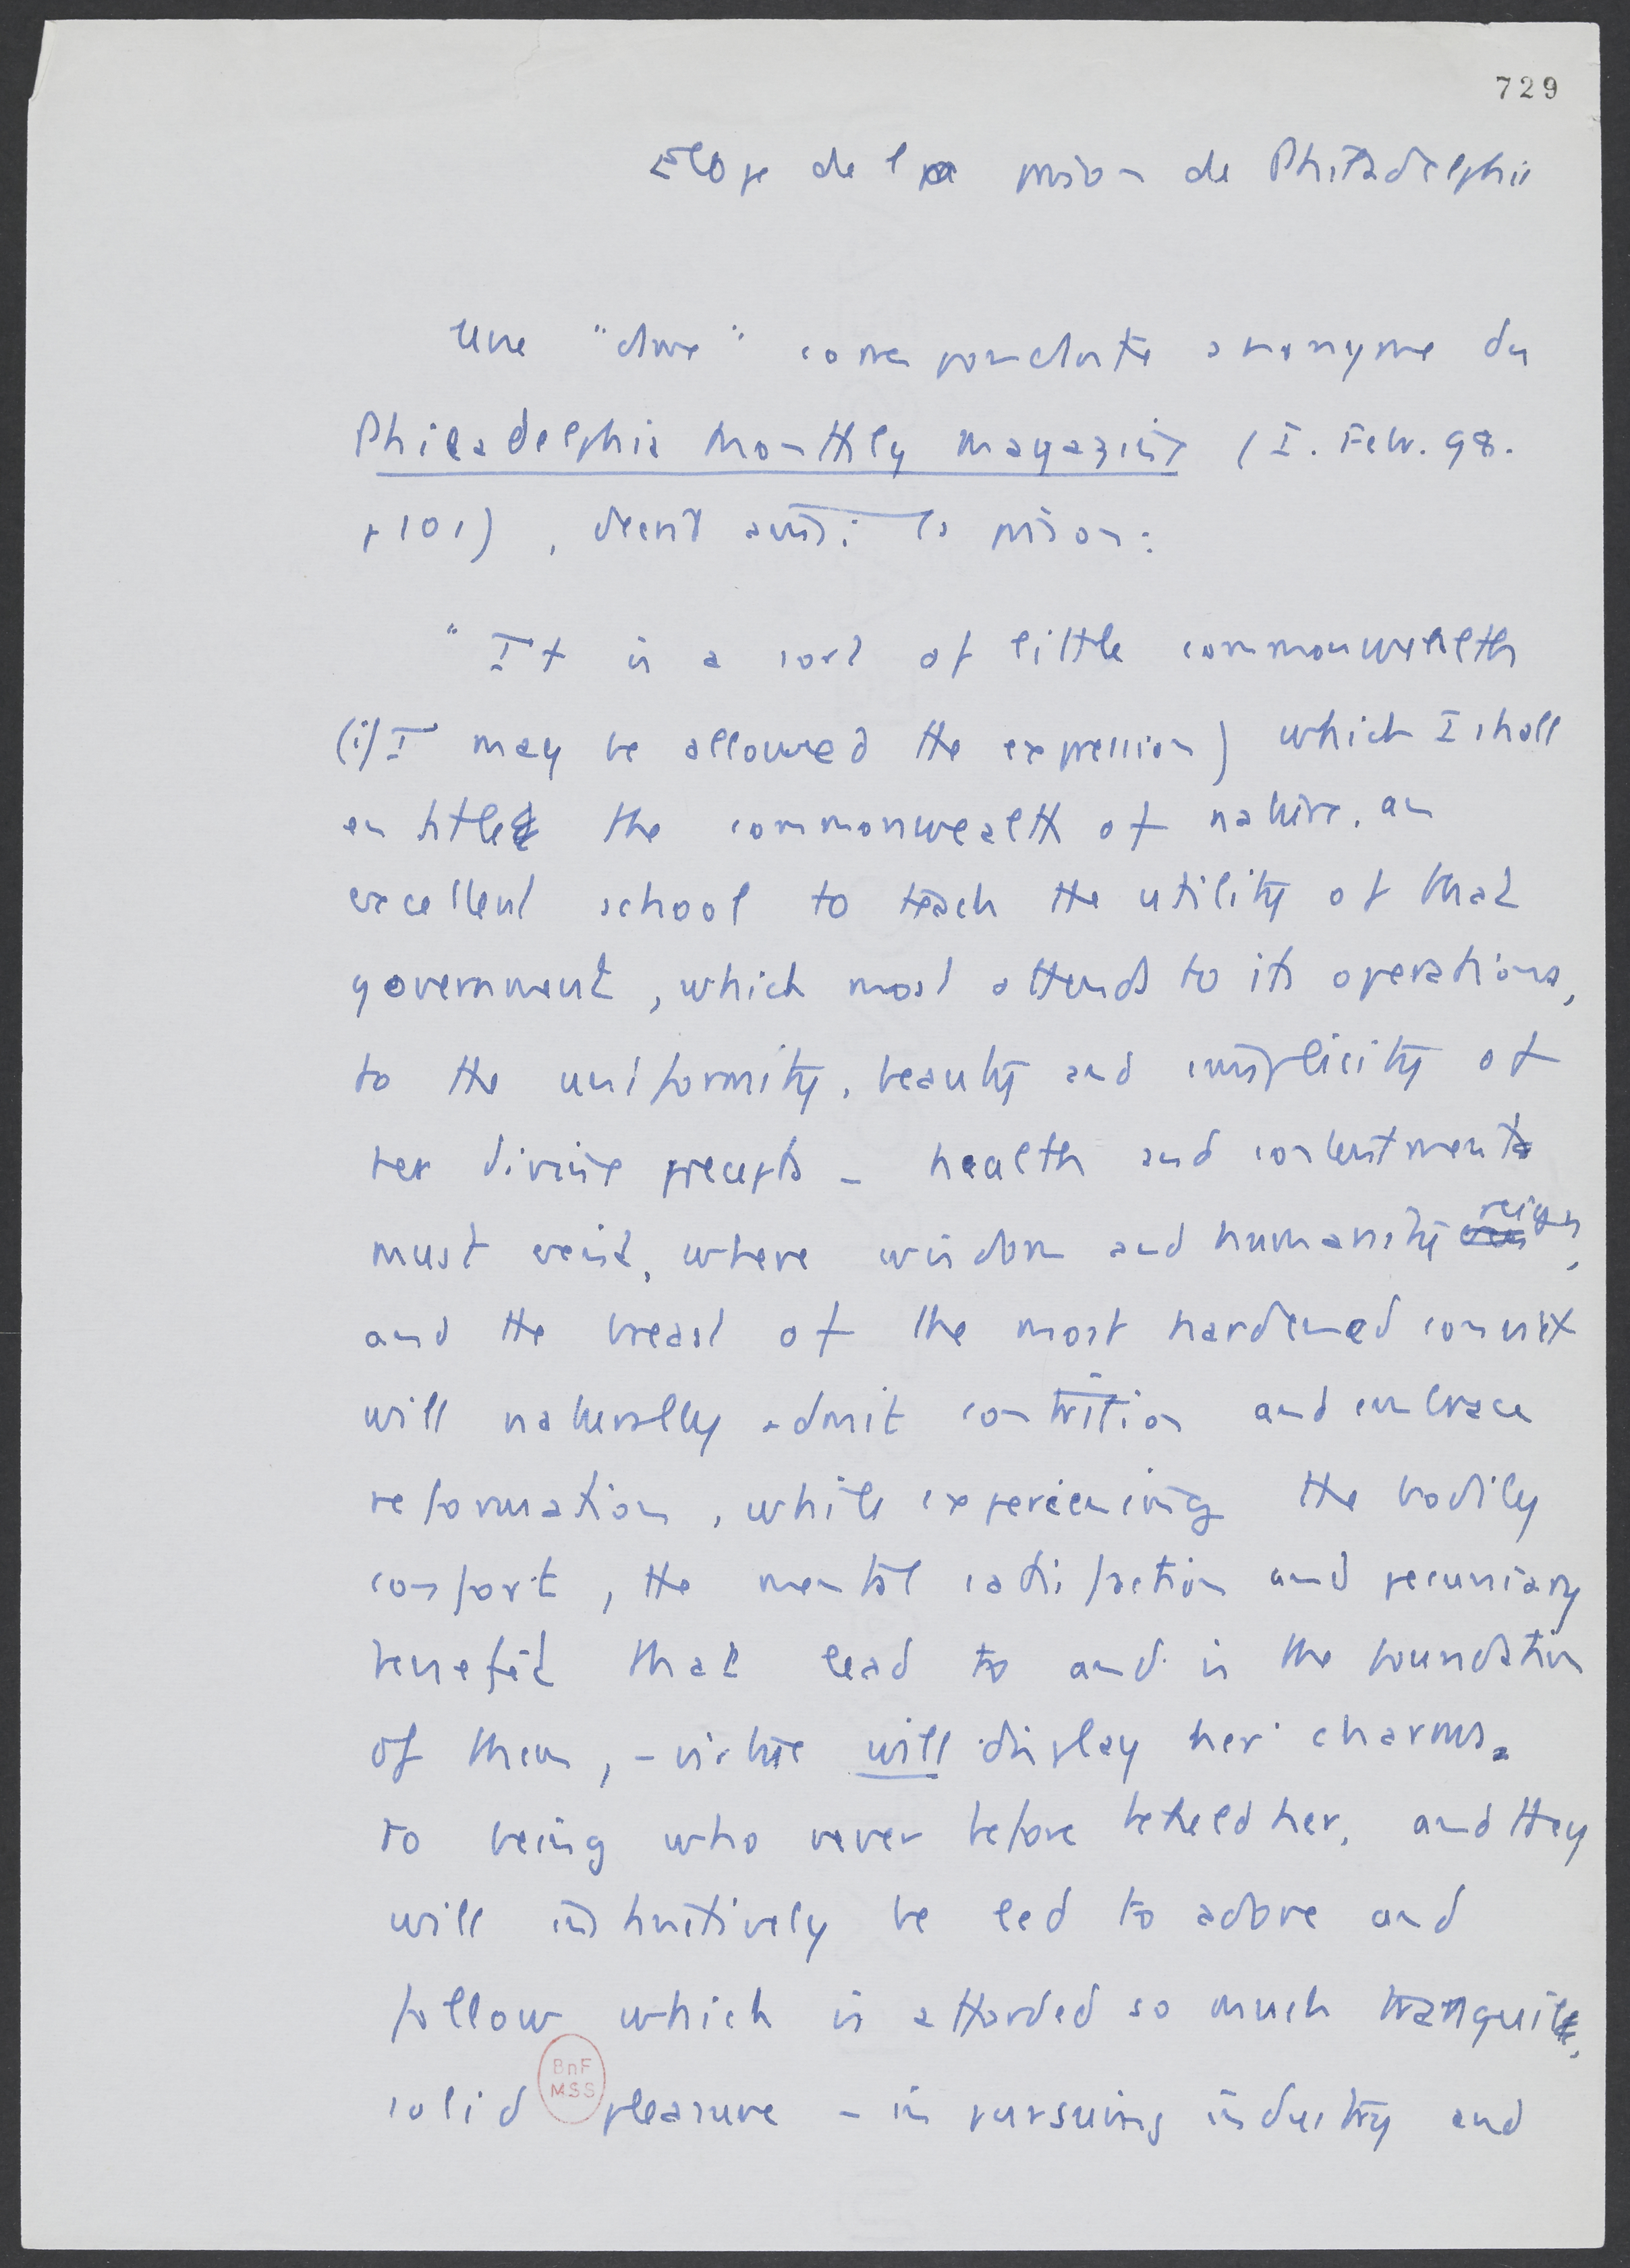 729
Eloge de la prison de Philadelphie
Une "dame" correspondante anonyme du
Philadelphia Monthly magazine (I. Febr. 98.
p 101), décrit ainsi la prison:
" It is a sort of little commonwealth
(if I may be allowed the expression) which I shall
entitled the commonwealth of nature, an
excellent school to teach the utility of that
government, which most attends to its operations,
to the uniformity, beauty and simplicity of
her divine precepts - health and contentment
must exist, where wisdom and humanity reign,
and the breast of the most hardened convict
will naturally admit contrition and embrace
reformation, while experiencing the bodily
comfort, the mental satisfaction and pecuniary
benefit that lead to and is the foundation
of them, - virtue will display her charms
to being who never before beheld her, and they
will instinctively be led to adore and
follow which is afforded so much tranquil,
solid pleasure - in pursuing industry and
BnF
MSS